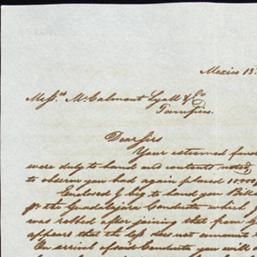 Mexico 13
Messrs. McCalmont Lyall & Co
Dear Sirs
Your esteemed favor
were duly to hand and contents noted
to observe you had again placed
Enclosed I beg to hand you Bill
the Guadalajara Conducta which
was robbed after joining that from
appears that the loss does not amount
On arrival of said Conducta you will